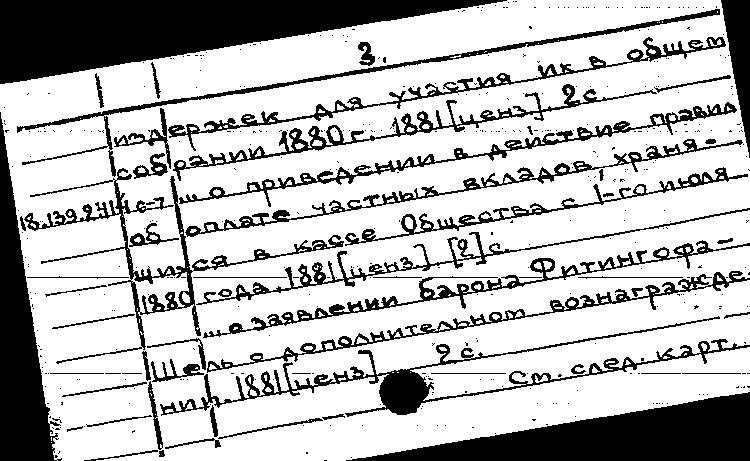 3.
издержек для участия их в общем
собрании 1880 г. 1881 [ценз]. 2 с.
... о приведении в действие правил
об оплате частных вкладов, храня-
щихся в кассе Общества с 1-го июля
1880 года. 1881 [ценз]. [2] с.
... о заявлении барона Фитингофа-
Шель о дополнительном вознагражде-
нии. 1881 [ценз] 2 с.
См. след. карт.